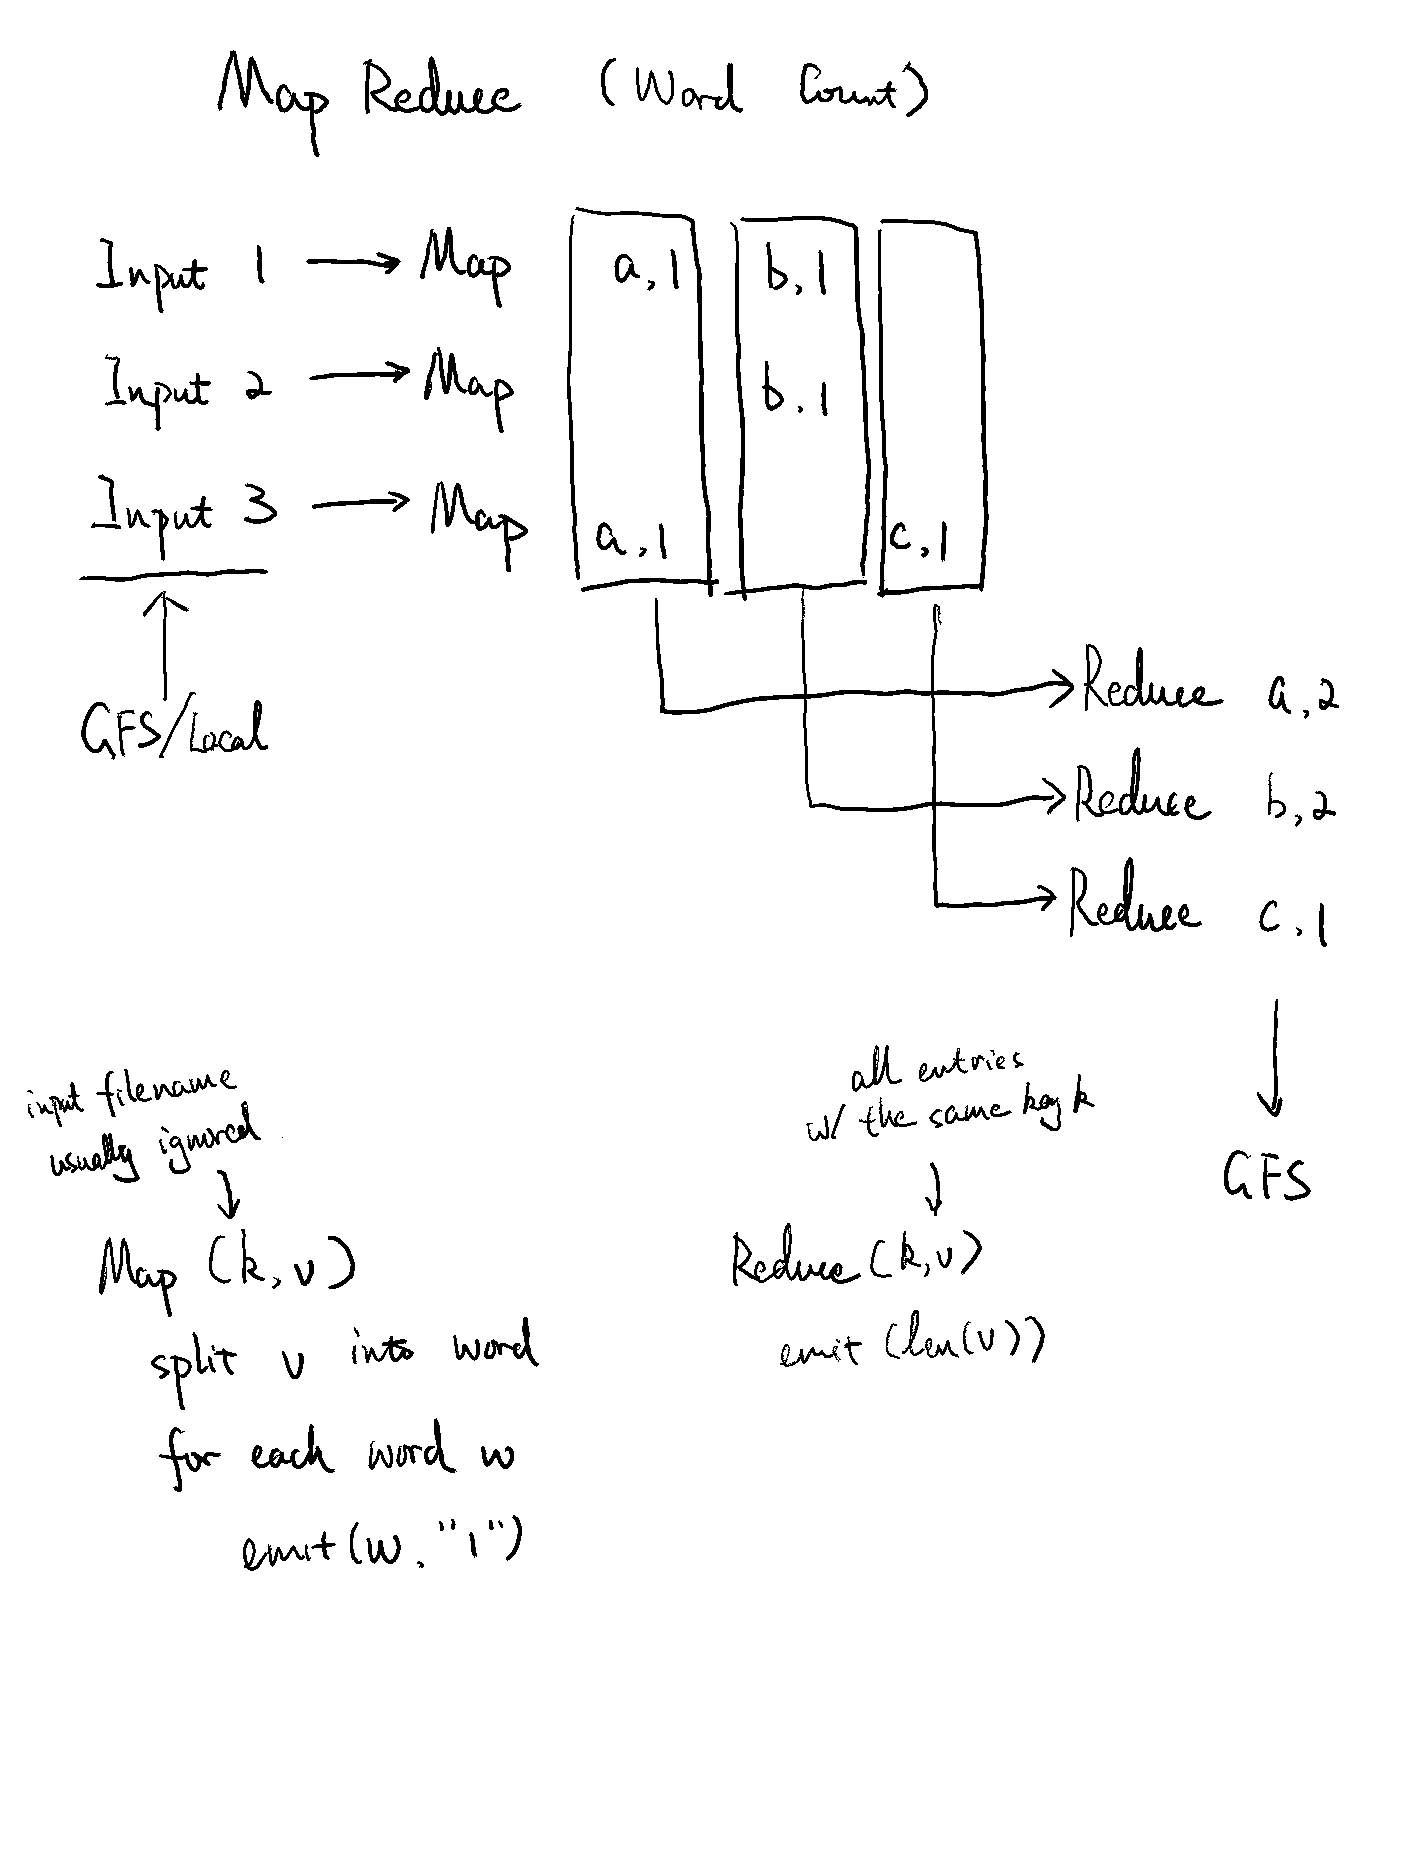 Map Reduce (Word Count)
Input 1 Map a,1 b,1
Input 2 Map b,1
Input 3 Map a,1 c,1
GFS/Local
Reduce a,2
Reduce b,2
Reduce c,1
GFS
input filename
usually ignored
Map (k,v)
split v into word
for each word w
emit(w, "1")
all entries
w/ the same key k
Reduce (k,v)
emit (len(v))